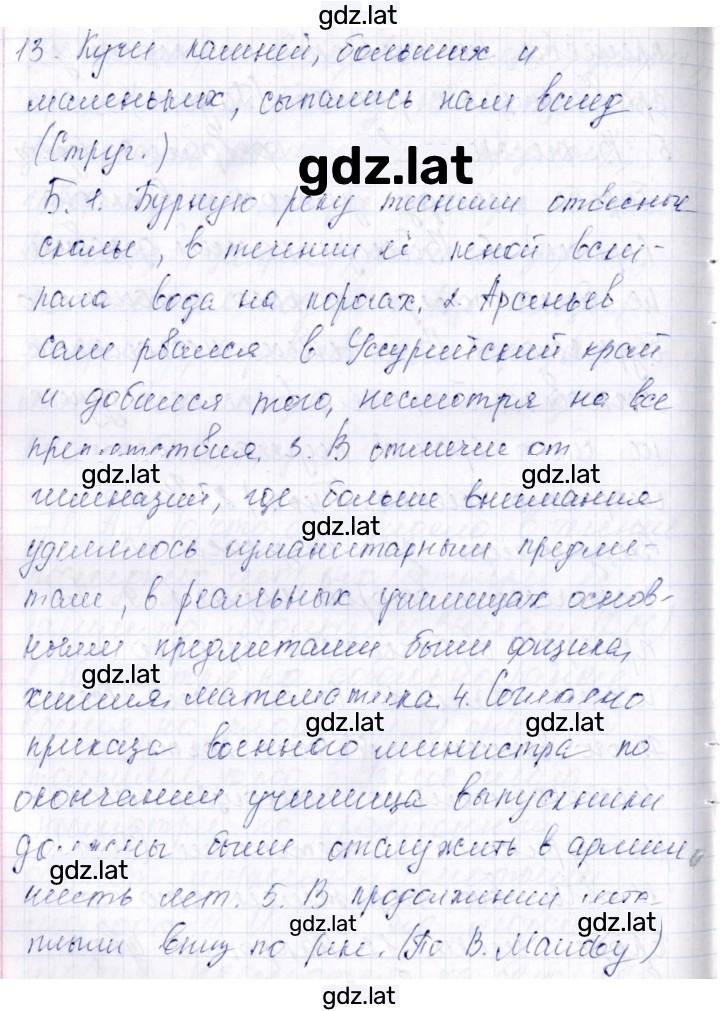 gdz.lat
13. Кучи камней, больших и
маленьких, сыпались нам вслед.
(Струг.)
gdz.lat
Б. 1. Бурную реку теснили отвесные
скалы, в течении её пеной вски-
пала вода на порогах. 2. Арсеньев
сам рвался в Уссурийский край
и добился того, несмотря на все
препятствия. 3. В отличии от
gdz.lat gdz.lat
гимназий, где больше внимания
gdz.lat
уделялось гуманитарным предме-
там, в реальных училищах основ-
ными предметами были физика,
gdz.lat
химия, математика. 4. Согласно
gdz.lat gdz.lat
приказа военного министра по
окончании училища выпускники
должны были отслужить в армии
gdz.lat
шесть лет. 5. В продолжении
gdz.lat gdz.lat
плыли вниз по реке. (По В.
gdz.lat